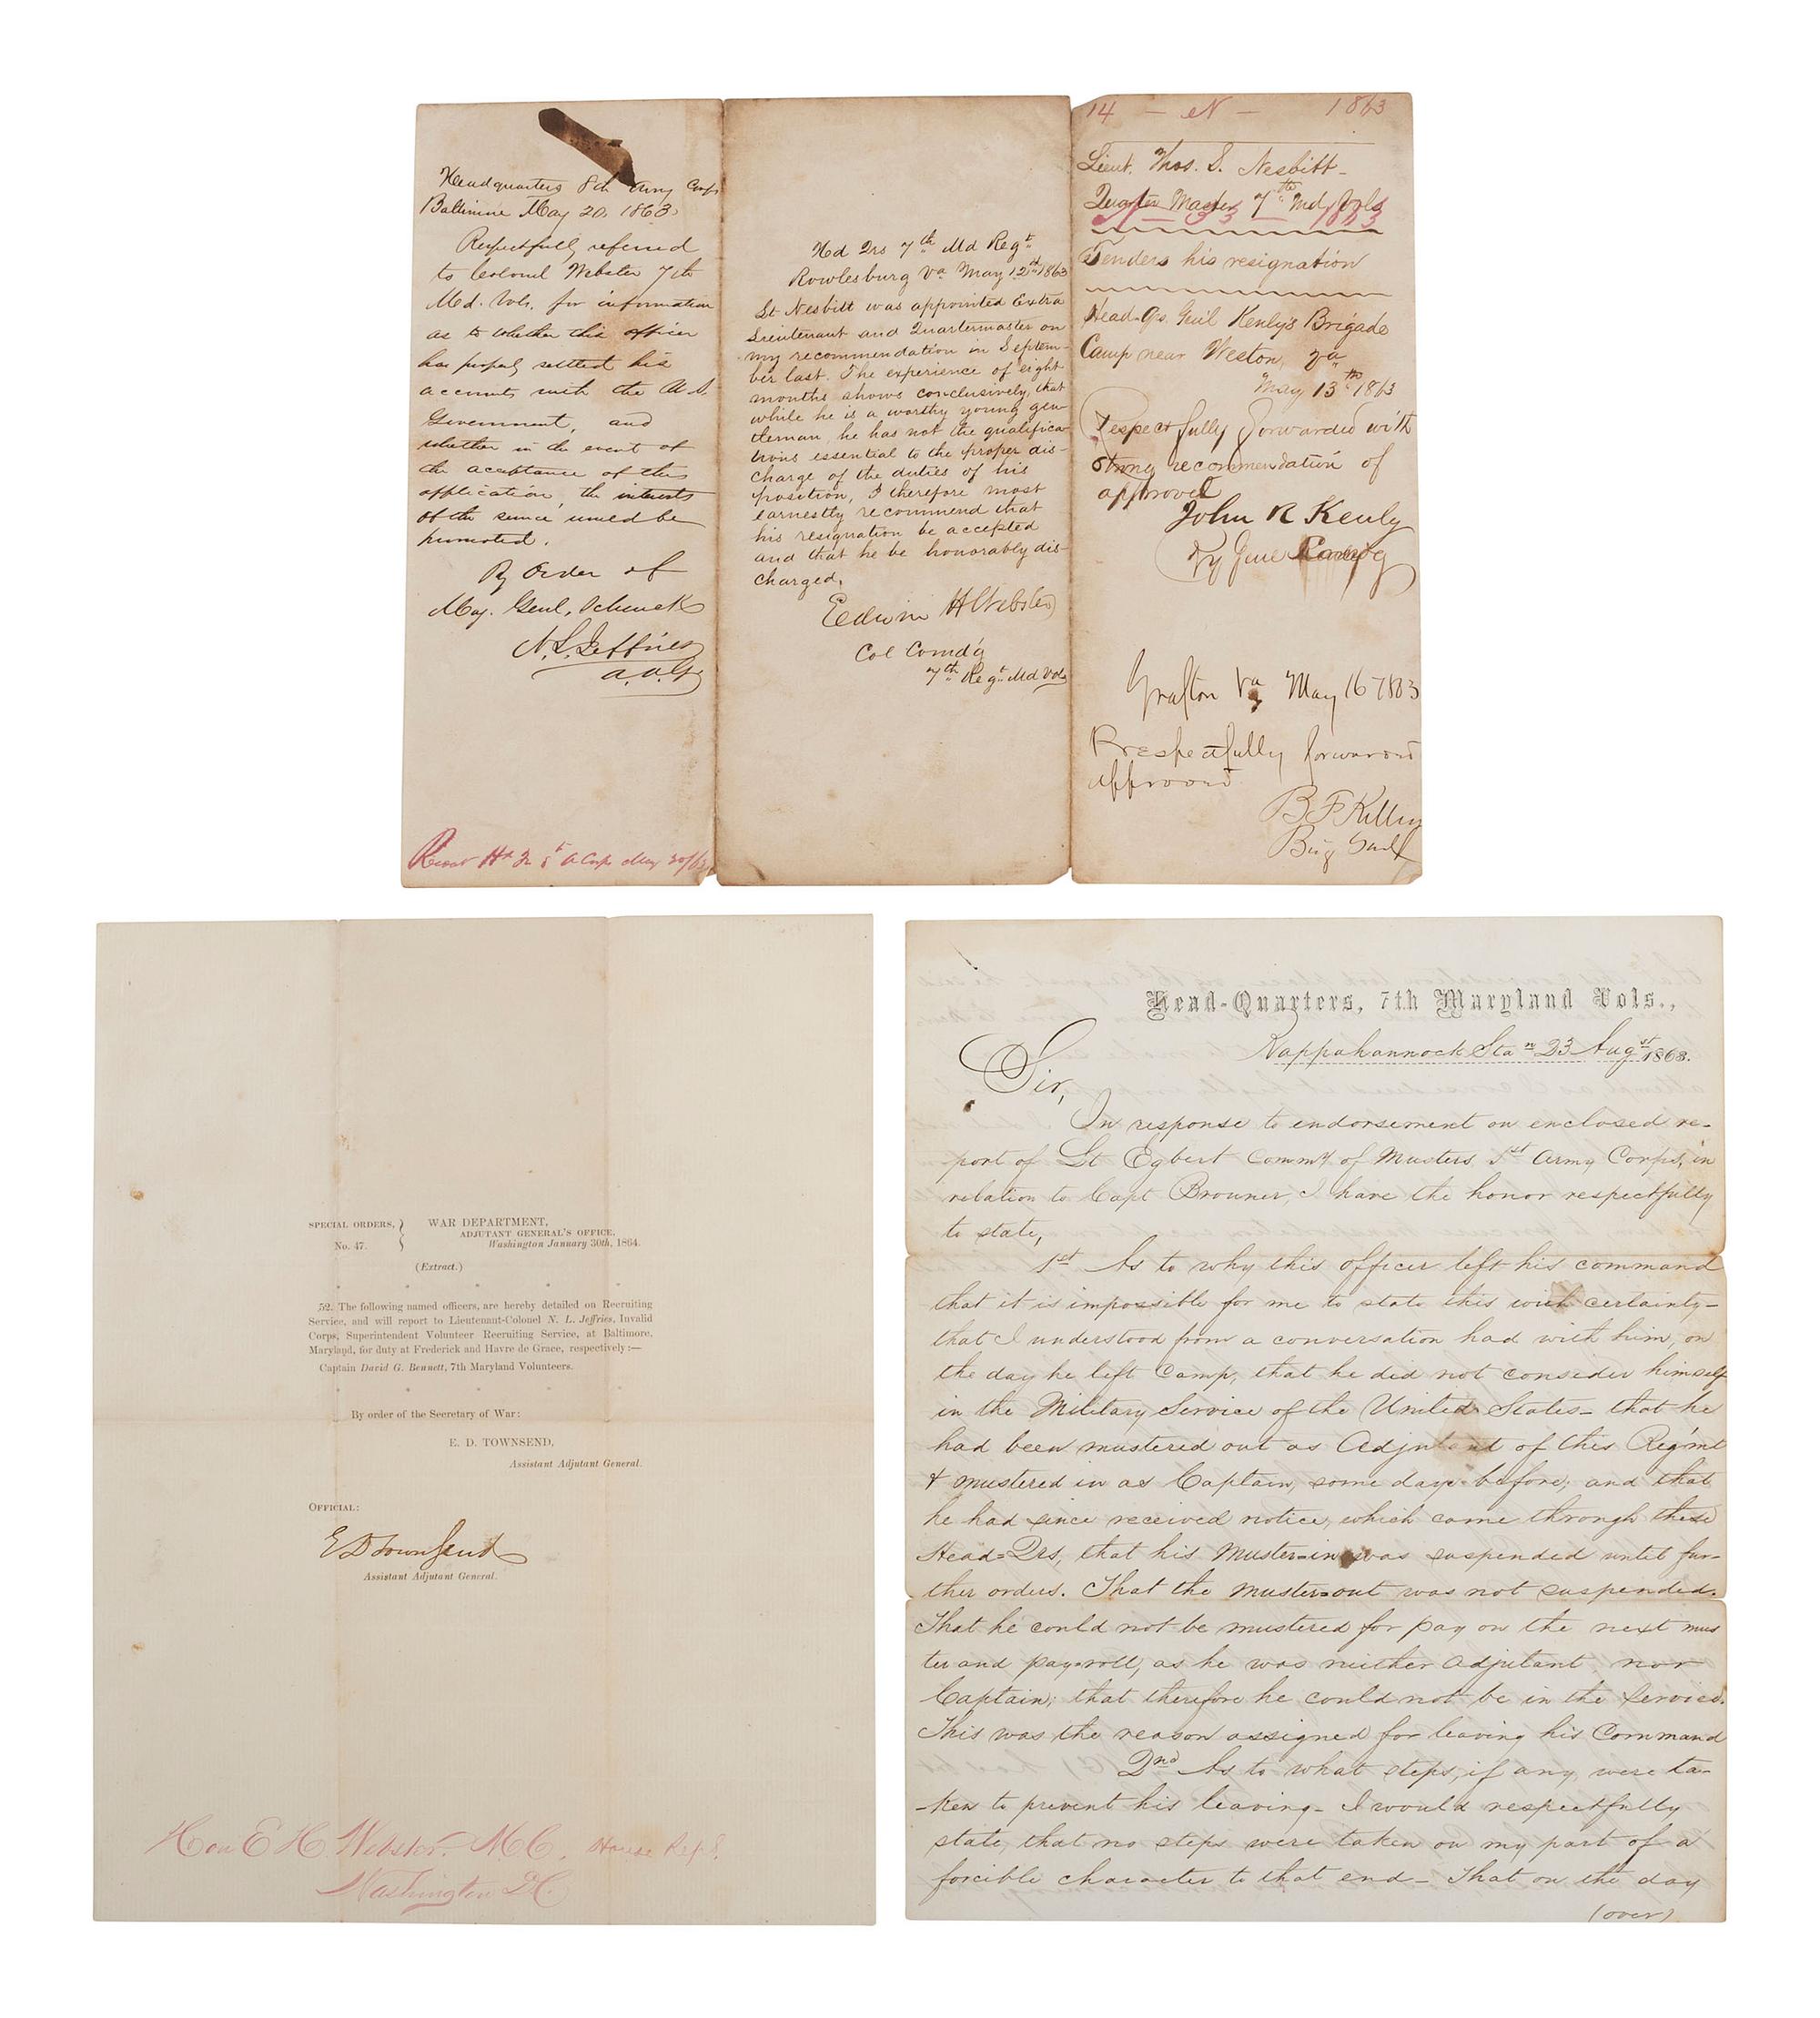 Headquarters 8th Army Corps
Baltimore May 20, 1863.
Respectfully referred
to Colonel Webster 7th
Md. Vols. for information
as to whether this officer
has properly settled his
accounts with the U.S.
Government, and
whether in the event of
the acceptance of this
application, the interests
of the service would be
promoted.
By Order of
Maj. Genl. Schenck
N. L. Jeffries
A.A.G.
Hd Qrs 8th A Corps May 20/63
Hd Qrs 7th Md Regt
Rowlesburg Va May 12th 1863
Lt Nesbitt was appointed Extra
Lieutenant and Quartermaster on
my recommendation in Septem-
ber last. The experience of eight
months shows conclusively, that
while he is a worthy young gen-
tleman, he has not the qualifica-
tions essential to the proper dis-
charge of the duties of his
position, I therefore most
earnestly recommend that
his resignation be accepted
and that he be honorably dis-
charged.
Edwin H Webster
Col Comd'g
7th Regt Md Vols
14 — N — 1863
Lieut. Thos. S. Nesbitt-
Quarter Master 7th Md Vols
1863
Tenders his resignation
Head-Qs. Gen'l Kenly's Brigade
Camp near Weston, Va
May 13th 1863
Respectfully forwarded with
strong recommendation of
approval
John R Kenly
Brig Genl Comdg
Grafton Va May 16 1863
Respectfully forwarded
approved
B F Kelley
Brig Genl
SPECIAL ORDERS, } WAR DEPARTMENT,
ADJUTANT GENERAL'S OFFICE,
No. 47. Washington January 30th, 1864.
(Extract.)
* * * * *
52. The following named officers, are hereby detailed on Recruiting
Service, and will report to Lieutenant-Colonel N. L. Jeffries, Invalid
Corps, Superintendent Volunteer Recruiting Service, at Baltimore,
Maryland, for duty at Frederick and Havre de Grace, respectively:—
Captain David G. Bennett, 7th Maryland Volunteers.
* * * * *
By order of the Secretary of War:
E. D. TOWNSEND,
Assistant Adjutant General.
OFFICIAL:
E D Townsend
Assistant Adjutant General.
Hon E H Webster. M.C. House Reps.
Washington DC.
Head-Quarters, 7th Maryland Vols.,
Rappahannock Stan 23 Augst 1863.
Sir,
In response to endorsement on enclosed re-
port of Lt Egbert Commy of Musters 1st Army Corps, in
relation to Capt Brouner, I have the honor respectfully
to state,
1st As to why this officer left his command
that it is impossible for me to state this with certainty-
that I understood from a conversation had with him, on
the day he left Camp, that he did not consider himself
in the Military Service of the United States- that he
had been mustered out as Adjutant of this Reg'mt
& mustered in as Captain, some days before; and that
he had since received notice, which came through these
Head=Qrs, that his Muster=in was suspended until fur-
ther orders. That the Muster=out was not suspended.
That he could not be mustered for pay on the next mus
ter and pay=roll, as he was neither Adjutant nor
Captain; that therefore he could not be in the Service.
This was the reason assigned for leaving his Command
2nd As to what steps, if any, were ta-
-ken to prevent his leaving- I would respectfully
state, that no steps were taken on my part of a
forcible character to that end- That on the day
(over)